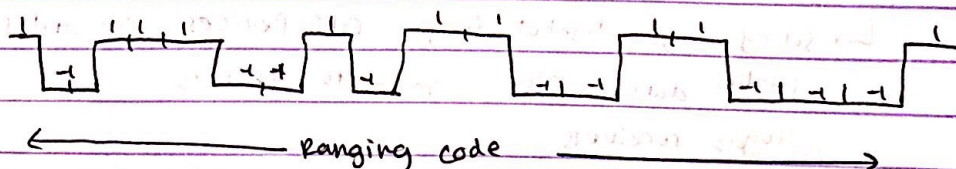 1 -1 1 1 1 -1 -1 1 -1 1 1 -1 -1 1 1 -1 -1 -1 1
Ranging code